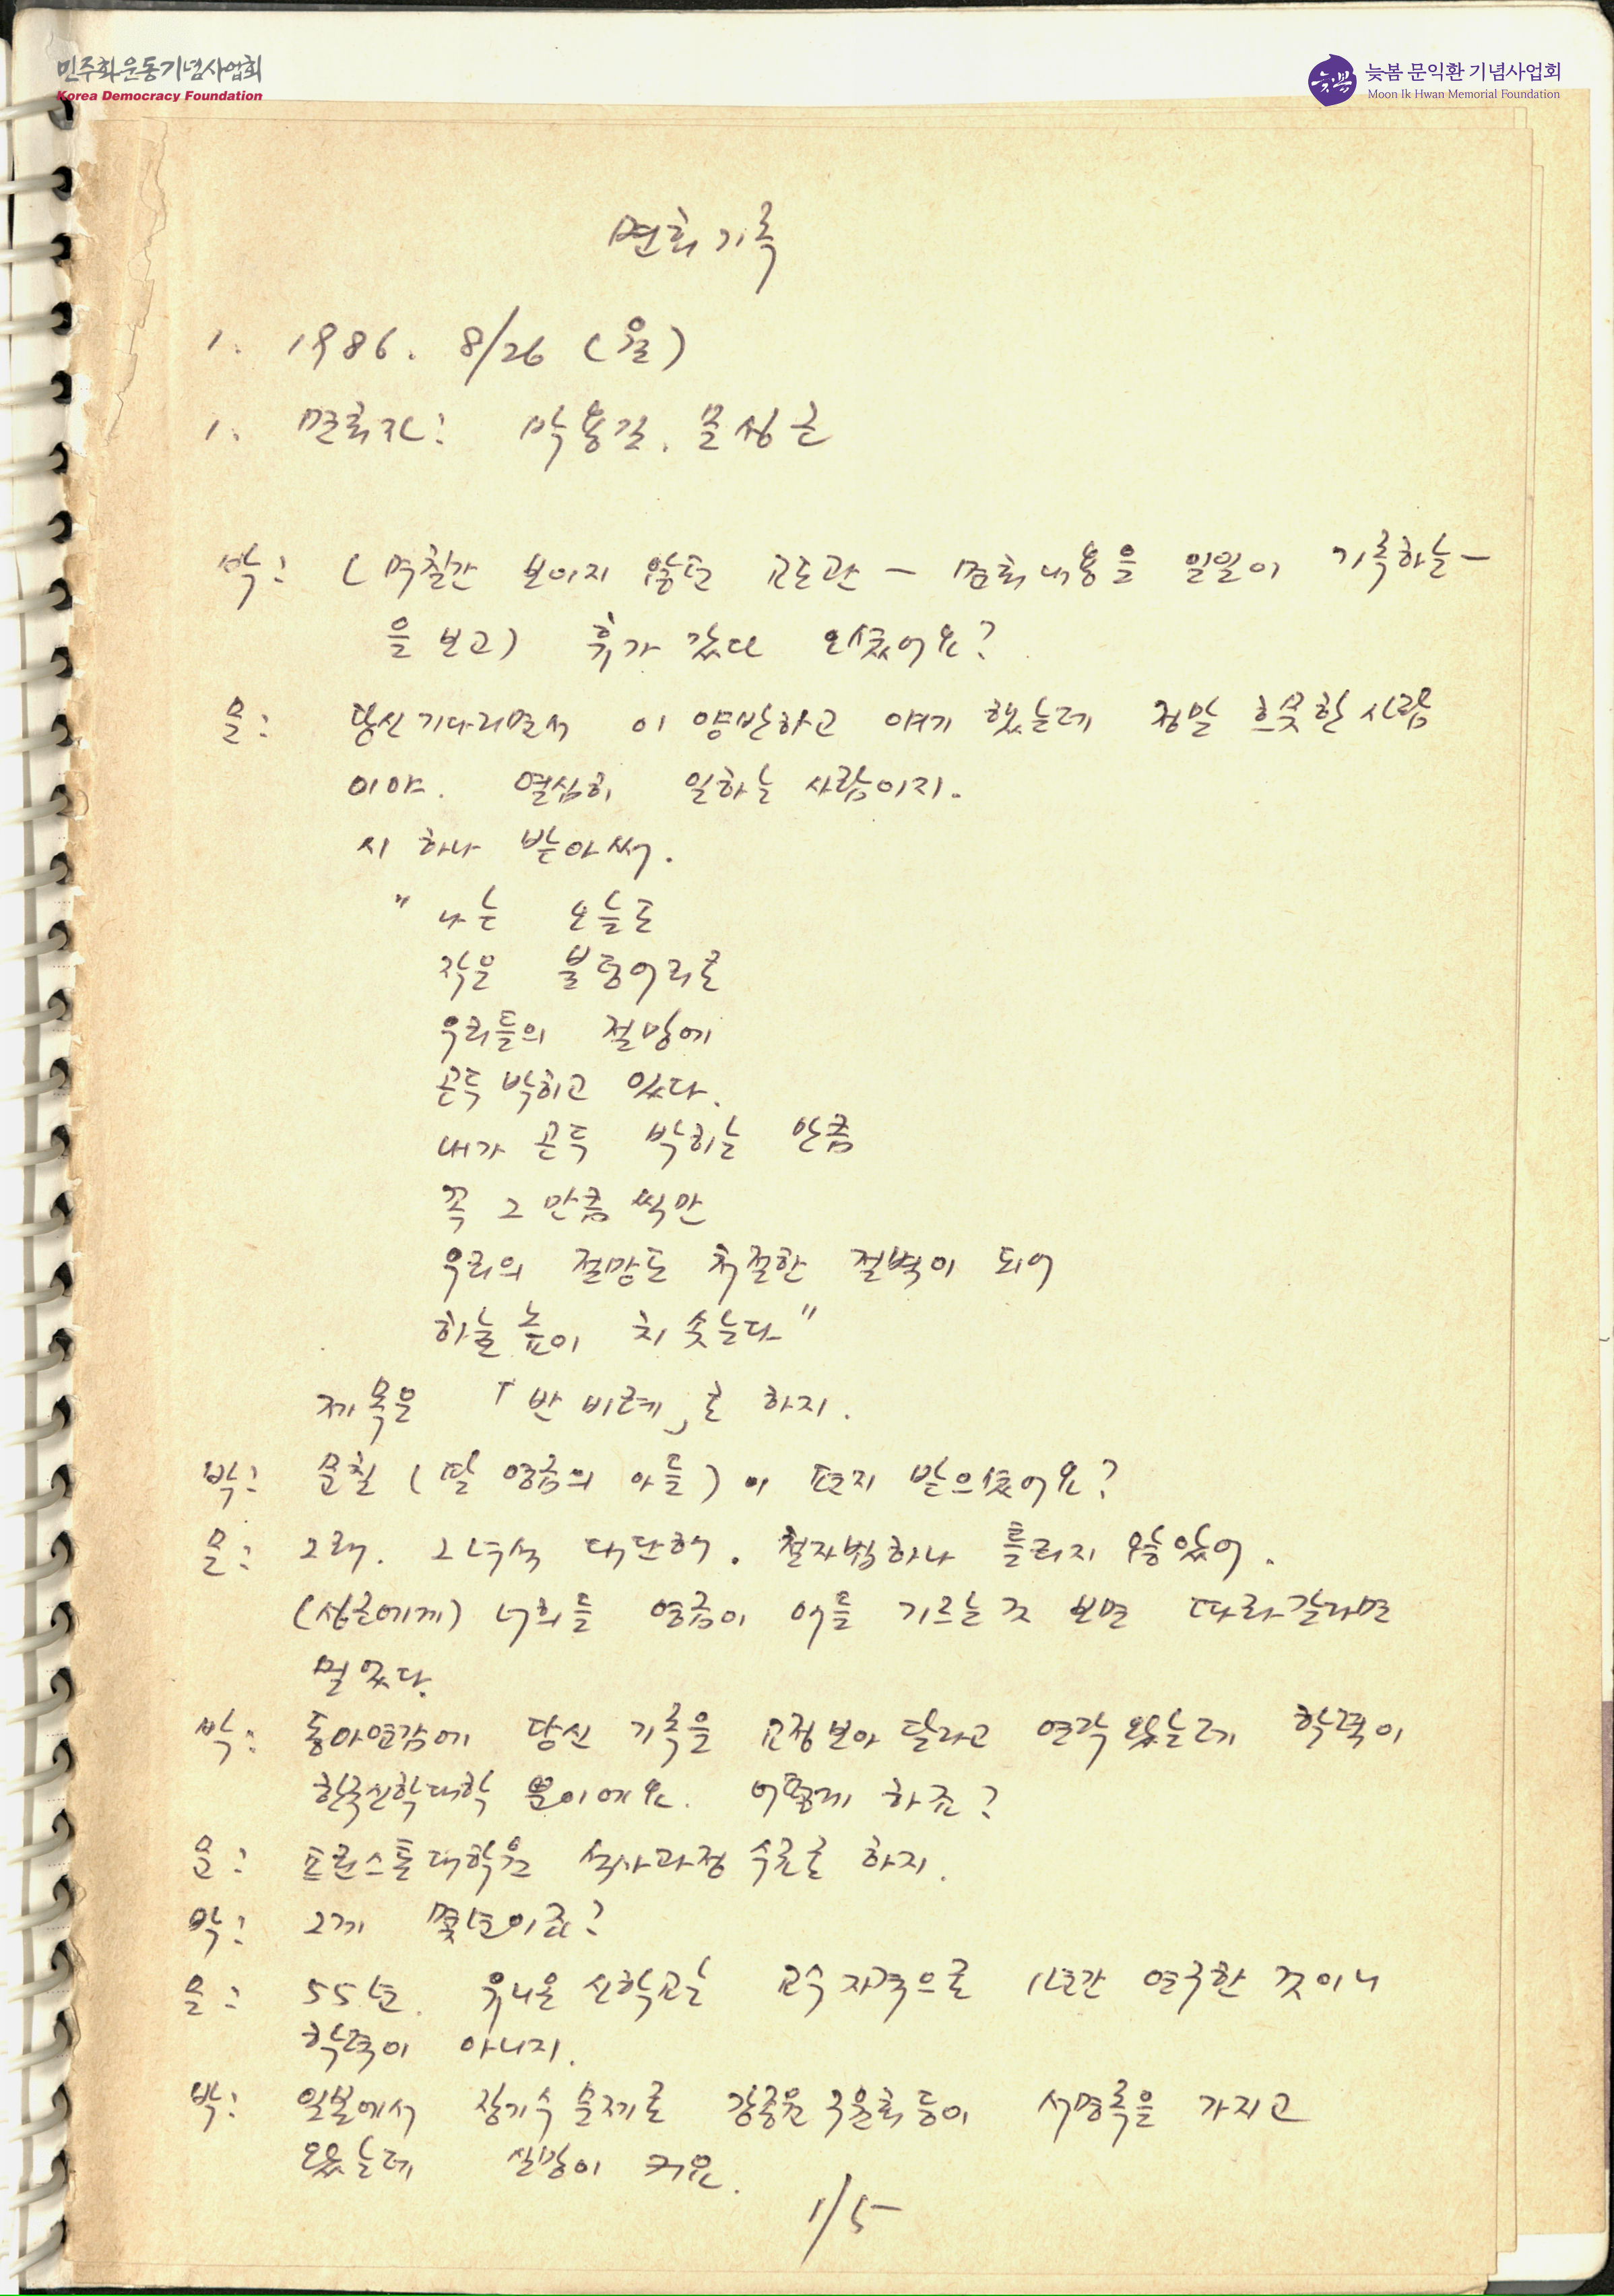 민주화운동기념사업회
Korea Democracy Foundation
늦봄
늦봄 문익환 기념사업회
Moon Ik Hwan Memorial Foundation
면회기록
1. 1986. 8/26 (월)
1. 면회자: 박용길. 문성근
박: (며칠간 보이지 않던 교도관 - 면회내용을 일일이 기록하는 -
을 보고) 휴가 갔다 오셨어요?
문: 당신 기다리면서 이 양반하고 얘기 했는데 정말 흐뭇한 사람
이야. 열심히 일하는 사람이지.
시 하나 받아 써.
" 나는 오늘도
작은 불덩어리로
우리들의 절망에
곤두 박히고 있다.
내가 곤두 박히는 만큼
꼭 그 만큼 씩만
우리의 절망도 처절한 절벽이 되어
하늘 높이 치 솟는다 "
제목은 「반비례」로 하지.
박: 문칠 (딸 영금의 아들) 이 편지 받으셨어요?
문: 그래. 그녀석 대단해. 철자법하나 틀리지 않았어.
(성근에게) 너희들 영금이 애들 기르는 것 보면 따라갈라면
멀었다.
박: 동아연감에 당신 기록을 교정보아 달라고 연락 왔는데 학력이
한국신학대학 뿐이에요. 어떻게 하죠?
문: 프린스톤대학원 석사과정 수료로 하지.
박: 그게 몇년이죠?
문: 55년. 유니온 신학교는 교수자격으로 1년간 연구한 것이니
학력이 아니지.
박: 일본에서 장기수 문제로 강종헌 구원회 등이 서명록을 가지고
왔는데 실망이 커요.
1/5